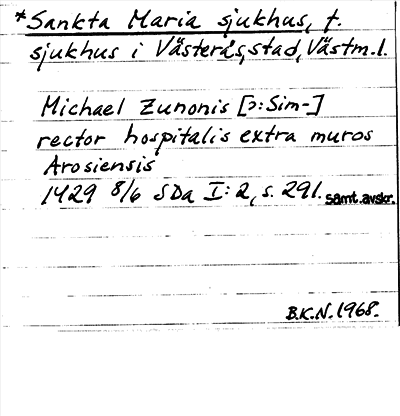 *Sankta Maria sjukhus, f.
sjukhus i Västerås, stad, Västm. l.
Michael Zunonis [ɔ: Sim-]
rector hospitalis extra muros
Arosiensis
1429 8/6 SDa I: 2, s. 291. samt. avskr.
B.K.N. 1968.